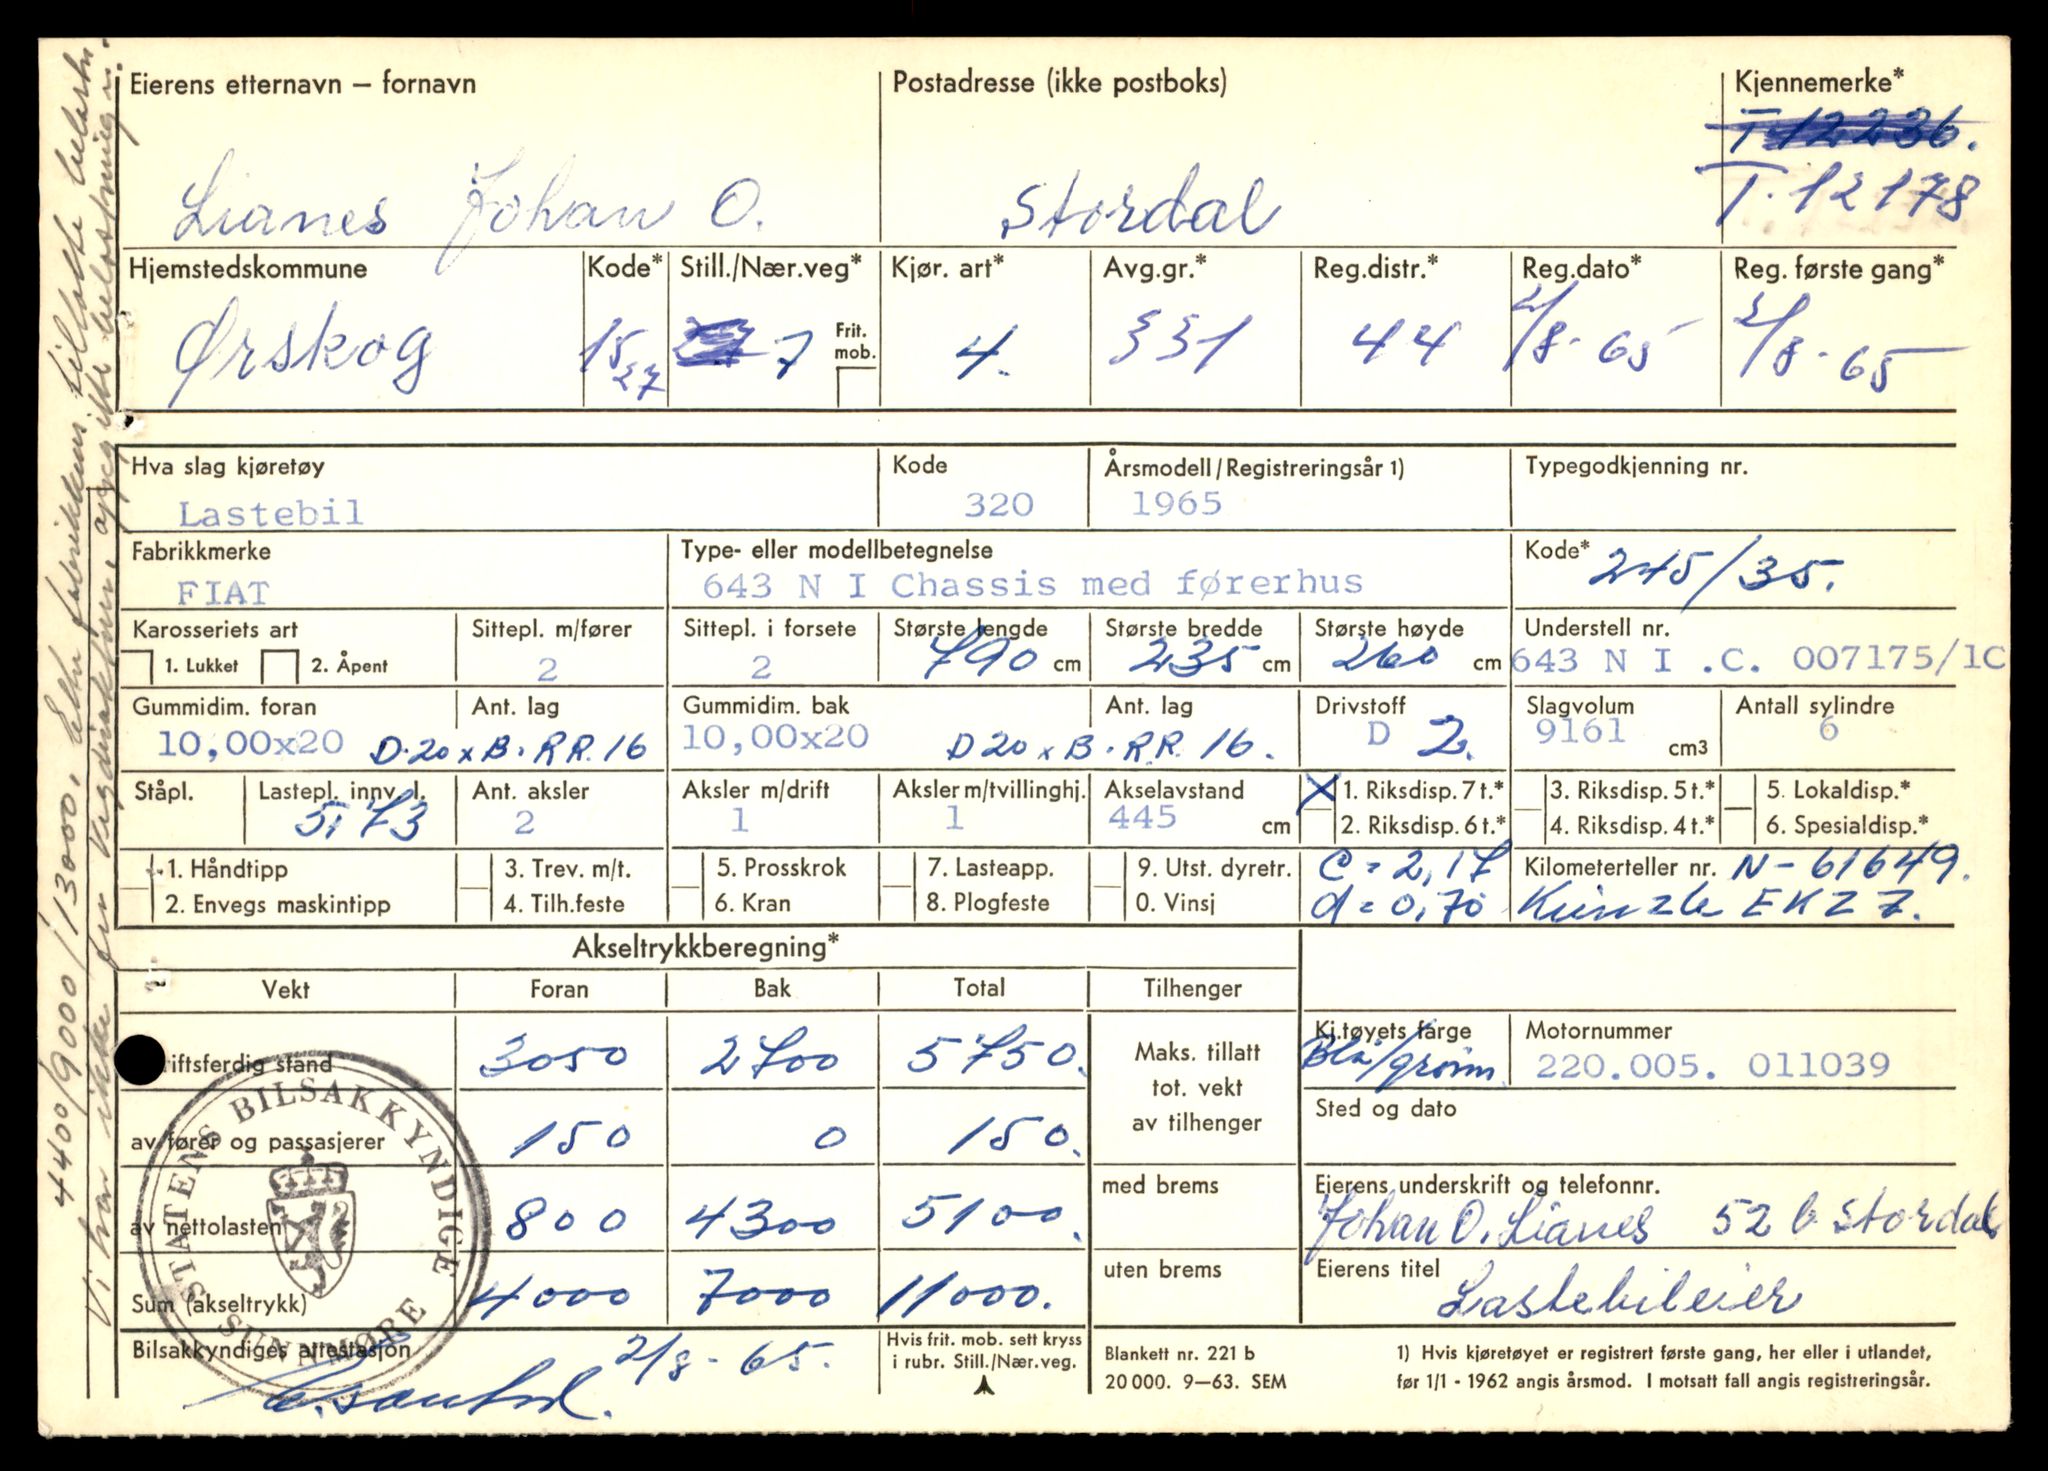 Eierens etternavn – fornavn
Lianes Johan O.
Postadresse (ikke postboks)
Stordal
Kjennemerke*
T-12236.
T. 12178
Hjemstedskommune
Ørskog
Kode*
1527
Still./Nær.veg*
7
Frit. mob.
Kjør. art*
4.
Avg.gr.*
331
Reg.distr.*
44
Reg.dato*
2/8-65
Reg. første gang*
2/8-65
Hva slag kjøretøy
Lastebil
Kode
320
Årsmodell/Registreringsår 1)
1965
Typegodkjenning nr.
Fabrikkmerke
FIAT
Type- eller modellbetegnelse
643 N I Chassis med førerhus
Kode*
245/35.
Karosseriets art
1. Lukket 2. Åpent
Sittepl. m/fører
2
Sittepl. i forsete
2
Største lengde
790 cm
Største bredde
235 cm
Største høyde
260 cm
Understell nr.
643 N I .C. 007175/1C
Gummidim. foran
10,00x20 D-20 x B. RR.
Ant. lag
16
Gummidim. bak
10,00x20 D 20 x B. R.R.
Ant. lag
16.
Drivstoff
D 2.
Slagvolum
9161 cm3
Antall sylindre
6
Ståpl.
Lastepl. innv. l.
5,73
Ant. aksler
2
Aksler m/drift
1
Aksler m/tvillinghj.
1
Akselavstand
445 cm
X 1. Riksdisp. 7 t.*
2. Riksdisp. 6 t.*
3. Riksdisp. 5 t.*
4. Riksdisp. 4 t.*
5. Lokaldisp.*
6. Spesialdisp.*
1. Håndtipp
2. Envegs maskintipp
3. Trev. m/t.
4. Tilh.feste
5. Prosskrok
6. Kran
7. Lasteapp.
8. Plogfeste
9. Utst. dyretr.
0. Vinsj
C = 2,17
d = 0,70
Kilometerteller nr. N-61649.
Kienzle EKZ 7.
Akseltrykkberegning*
Vekt Foran Bak Total Tilhenger
riftsferdig stand 3050 2700 5750.
av fører og passasjerer 150 0 150.
av nettolasten 800 4300 5100.
Sum (akseltrykk) 4000 7000 11000.
Maks. tillatt
tot. vekt
av tilhenger
med brems
uten brems
Kj.tøyets farge
Blå/grønn
Motornummer
220.005. 011039
Sted og dato
Eierens underskrift og telefonnr.
Johan O. Lianes 52 b Stordal
Eierens titel
Lastebileier
Bilsakkyndiges attestasjon
2/8-65.
Hvis frit. mob. sett kryss
i rubr. Still./Nær.veg.
Blankett nr. 221 b
20 000. 9–63. SEM
1) Hvis kjøretøyet er registrert første gang, her eller i utlandet,
før 1/1 - 1962 angis årsmod. I motsatt fall angis registreringsår.
STATENS BILSAKKYNDIGE
SUNNMØRE
4400/9000/13000. Etter fabrikkens tillatte belastn.
Vi har ikke fra Vegdirektøren oppgitte belastning